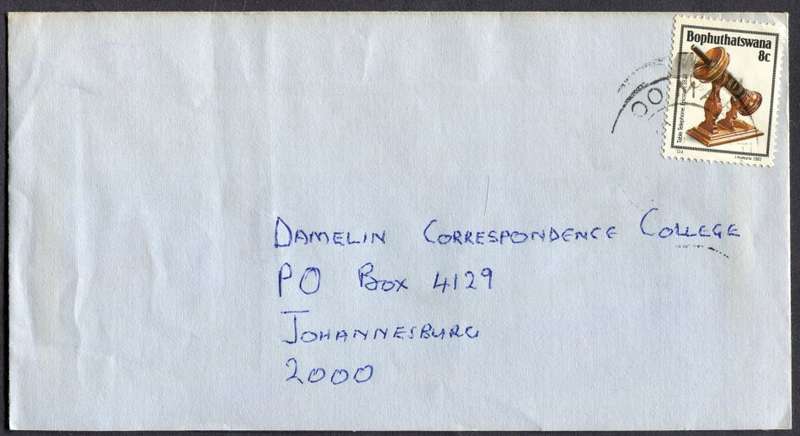 Bophuthatswana
8c
DAMELIN CORRESPONDENCE COLLEGE
PO BOX 4129
JOHANNESBURG
2000